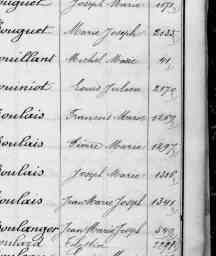 ouguet Joseph Marie 1071
ouguet Marie Joseph 2135
ouillant Michel Marc 41
ourniol Louis Julien 2170
oulais Francois Marie
oulais Pierre Marie 1297
oulais Joseph Marie 1316
oulais Jean Marie Joseph 1341
oulanger Jean Marie Joseph 340
oulard